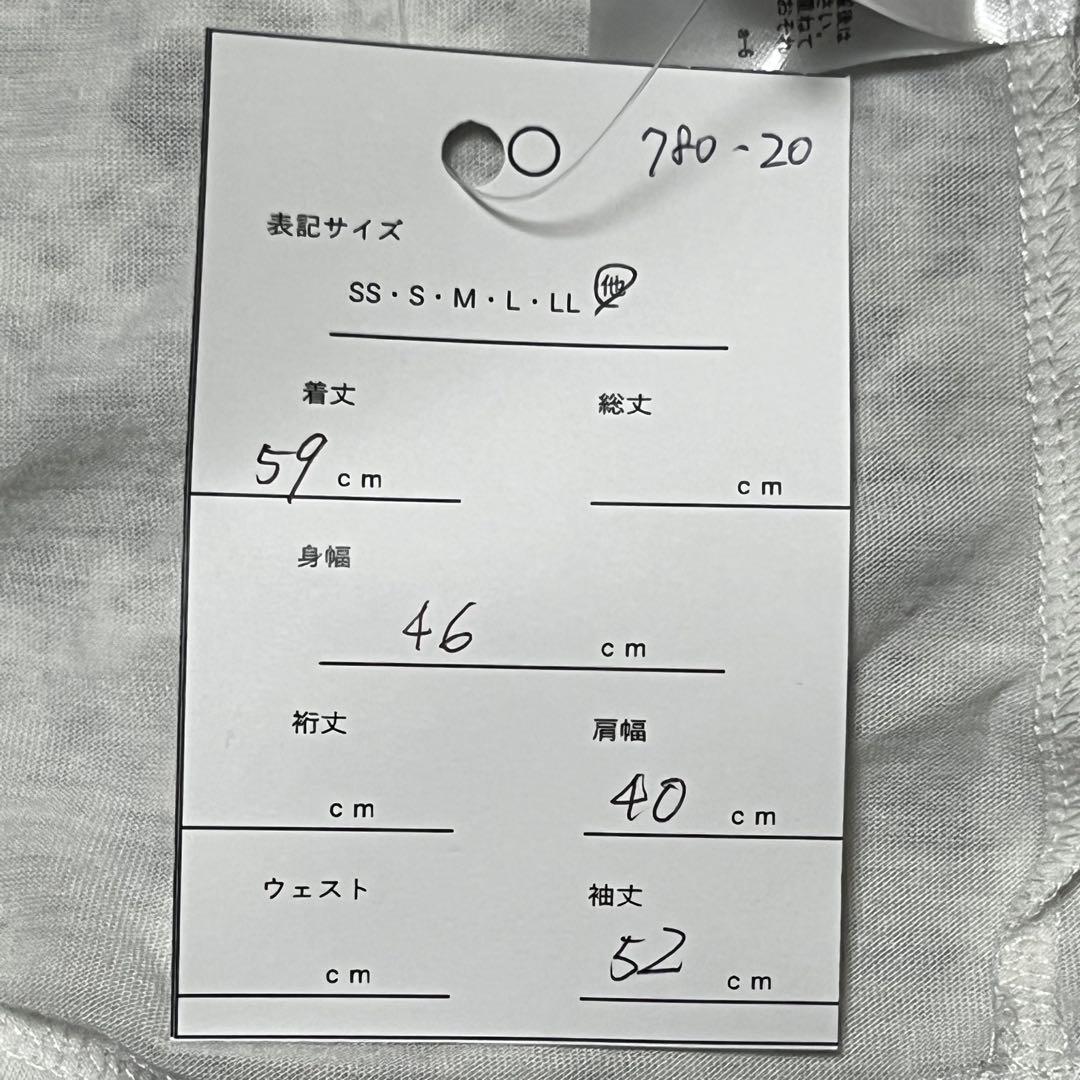 780-20
表記サイズ
SS・S・M・L・LL 他
着丈
総丈
59 cm
cm
身幅
46 cm
裄丈
肩幅
cm
40 cm
ウェスト
袖丈
cm
52 cm